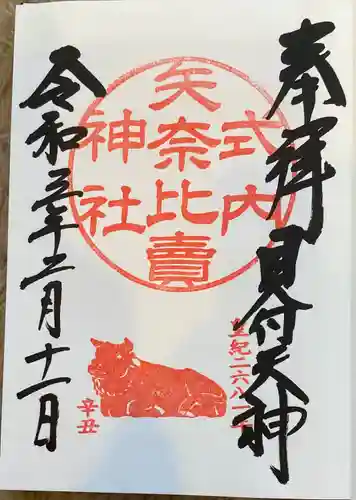 奉拝
見付天神
皇紀二六八一年
式内
矢奈比賣
神社
辛丑
令和三年十二月十一日